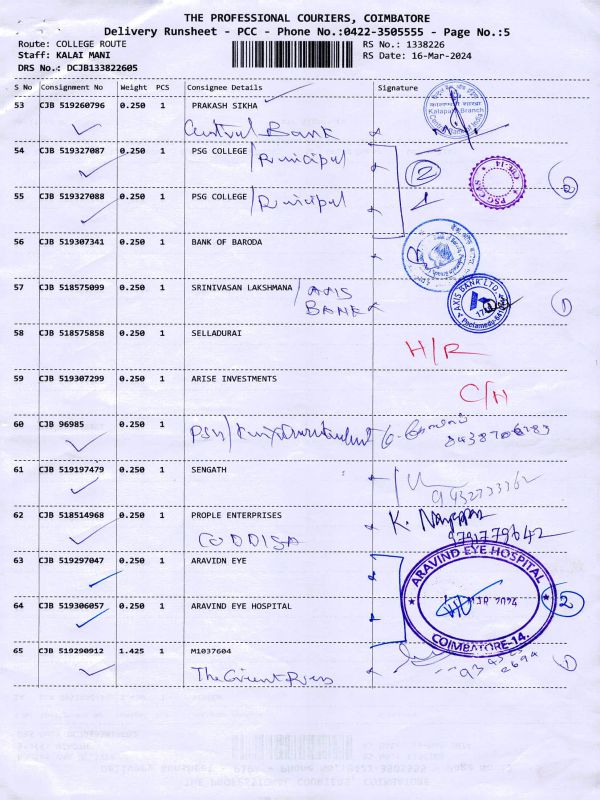 THE PROFESSIONAL COURIERS, COIMBATORE
Delivery Runsheet - PCC - Phone No.:0422-3505555 - Page No.:5
Route: COLLEGE ROUTE RS No.: 1338226
Staff: KALAI MANI RS Date: 16-Mar-2024
DRS No.: DCJB133822605
S No Consignment No Weight PCS Consignee Details Signature
53 CJB 519260796 0.250 1 PRAKASH SIKHA
Central Bank
54 CJB 519327087 0.250 1 PSG COLLEGE / 2
55 CJB 519327088 0.250 1 PSG COLLEGE / 1
56 CJB 519307341 0.250 1 BANK OF BARODA
57 CJB 518575099 0.250 1 SRINIVASAN LAKSHMANA / AXIS
BANK
AXIS BANK LTD.
58 CJB 518575858 0.250 1 SELLADURAI
H/R
59 CJB 519307299 0.250 1 ARISE INVESTMENTS
60 CJB 96985 0.250 1
61 CJB 519197479 0.250 1 SENGATH
62 CJB 518514968 0.250 1 PROPLE ENTERPRISES
CODDISA
9791779642
63 CJB 519297047 0.250 1 ARAVIDN EYE
ARAVIND EYE HOSPITAL
64 CJB 519306057 0.250 1 ARAVIND EYE HOSPITAL 2
COIMBATORE-14.
65 CJB 519290912 1.425 1 M1037604
The Orient Press